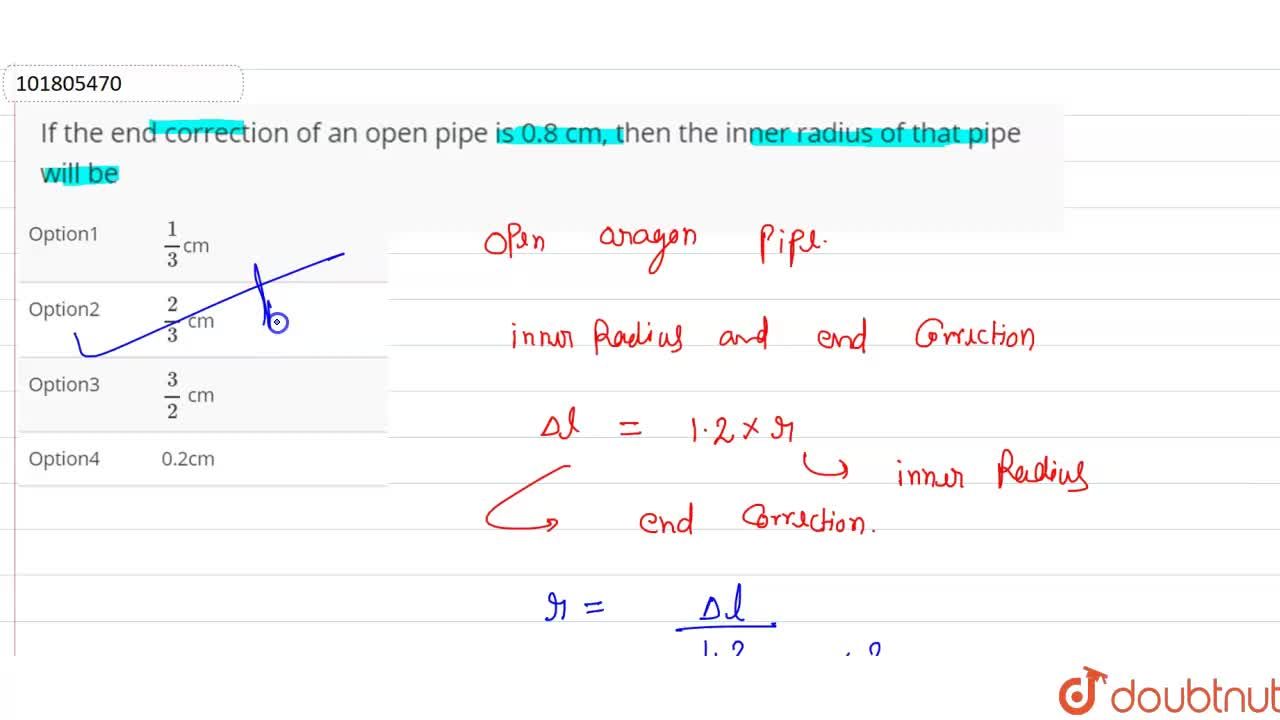 101805470
If the end correction of an open pipe is 0.8 cm, then the inner radius of that pipe
will be
Option1 1/3 cm
Option2 2/3 cm
Option3 3/2 cm
Option4 0.2cm
Open aragon Pipe.
inner Radius and end Correction
Δl = 1.2 × r
inner Radius
end Correction.
r = Δl
1.2
doubtnut